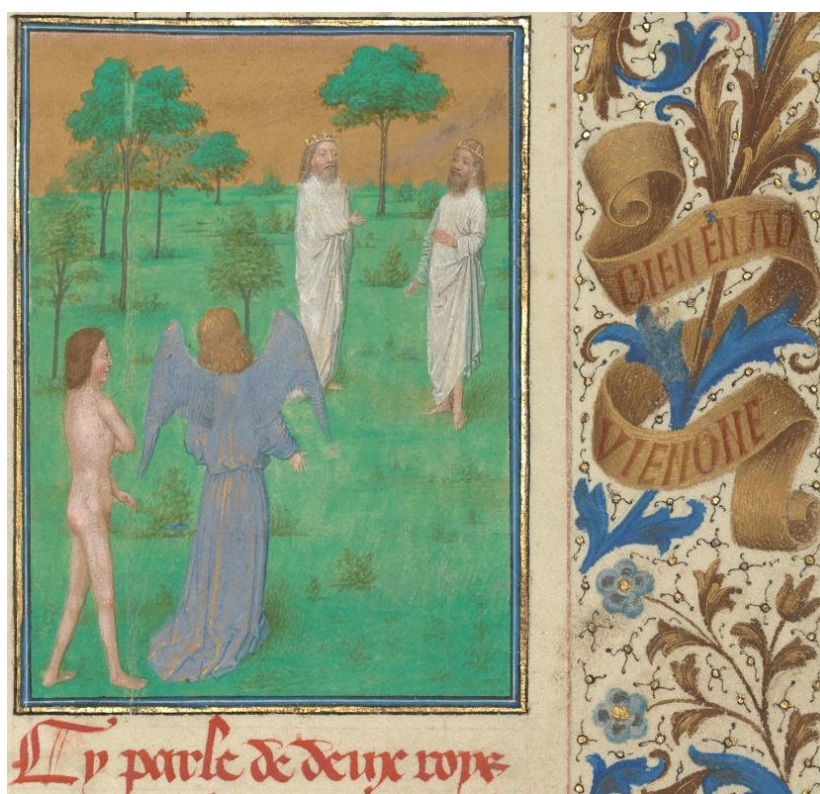 BIEN EN AD
VIENGNE
Cy parle de deux roys